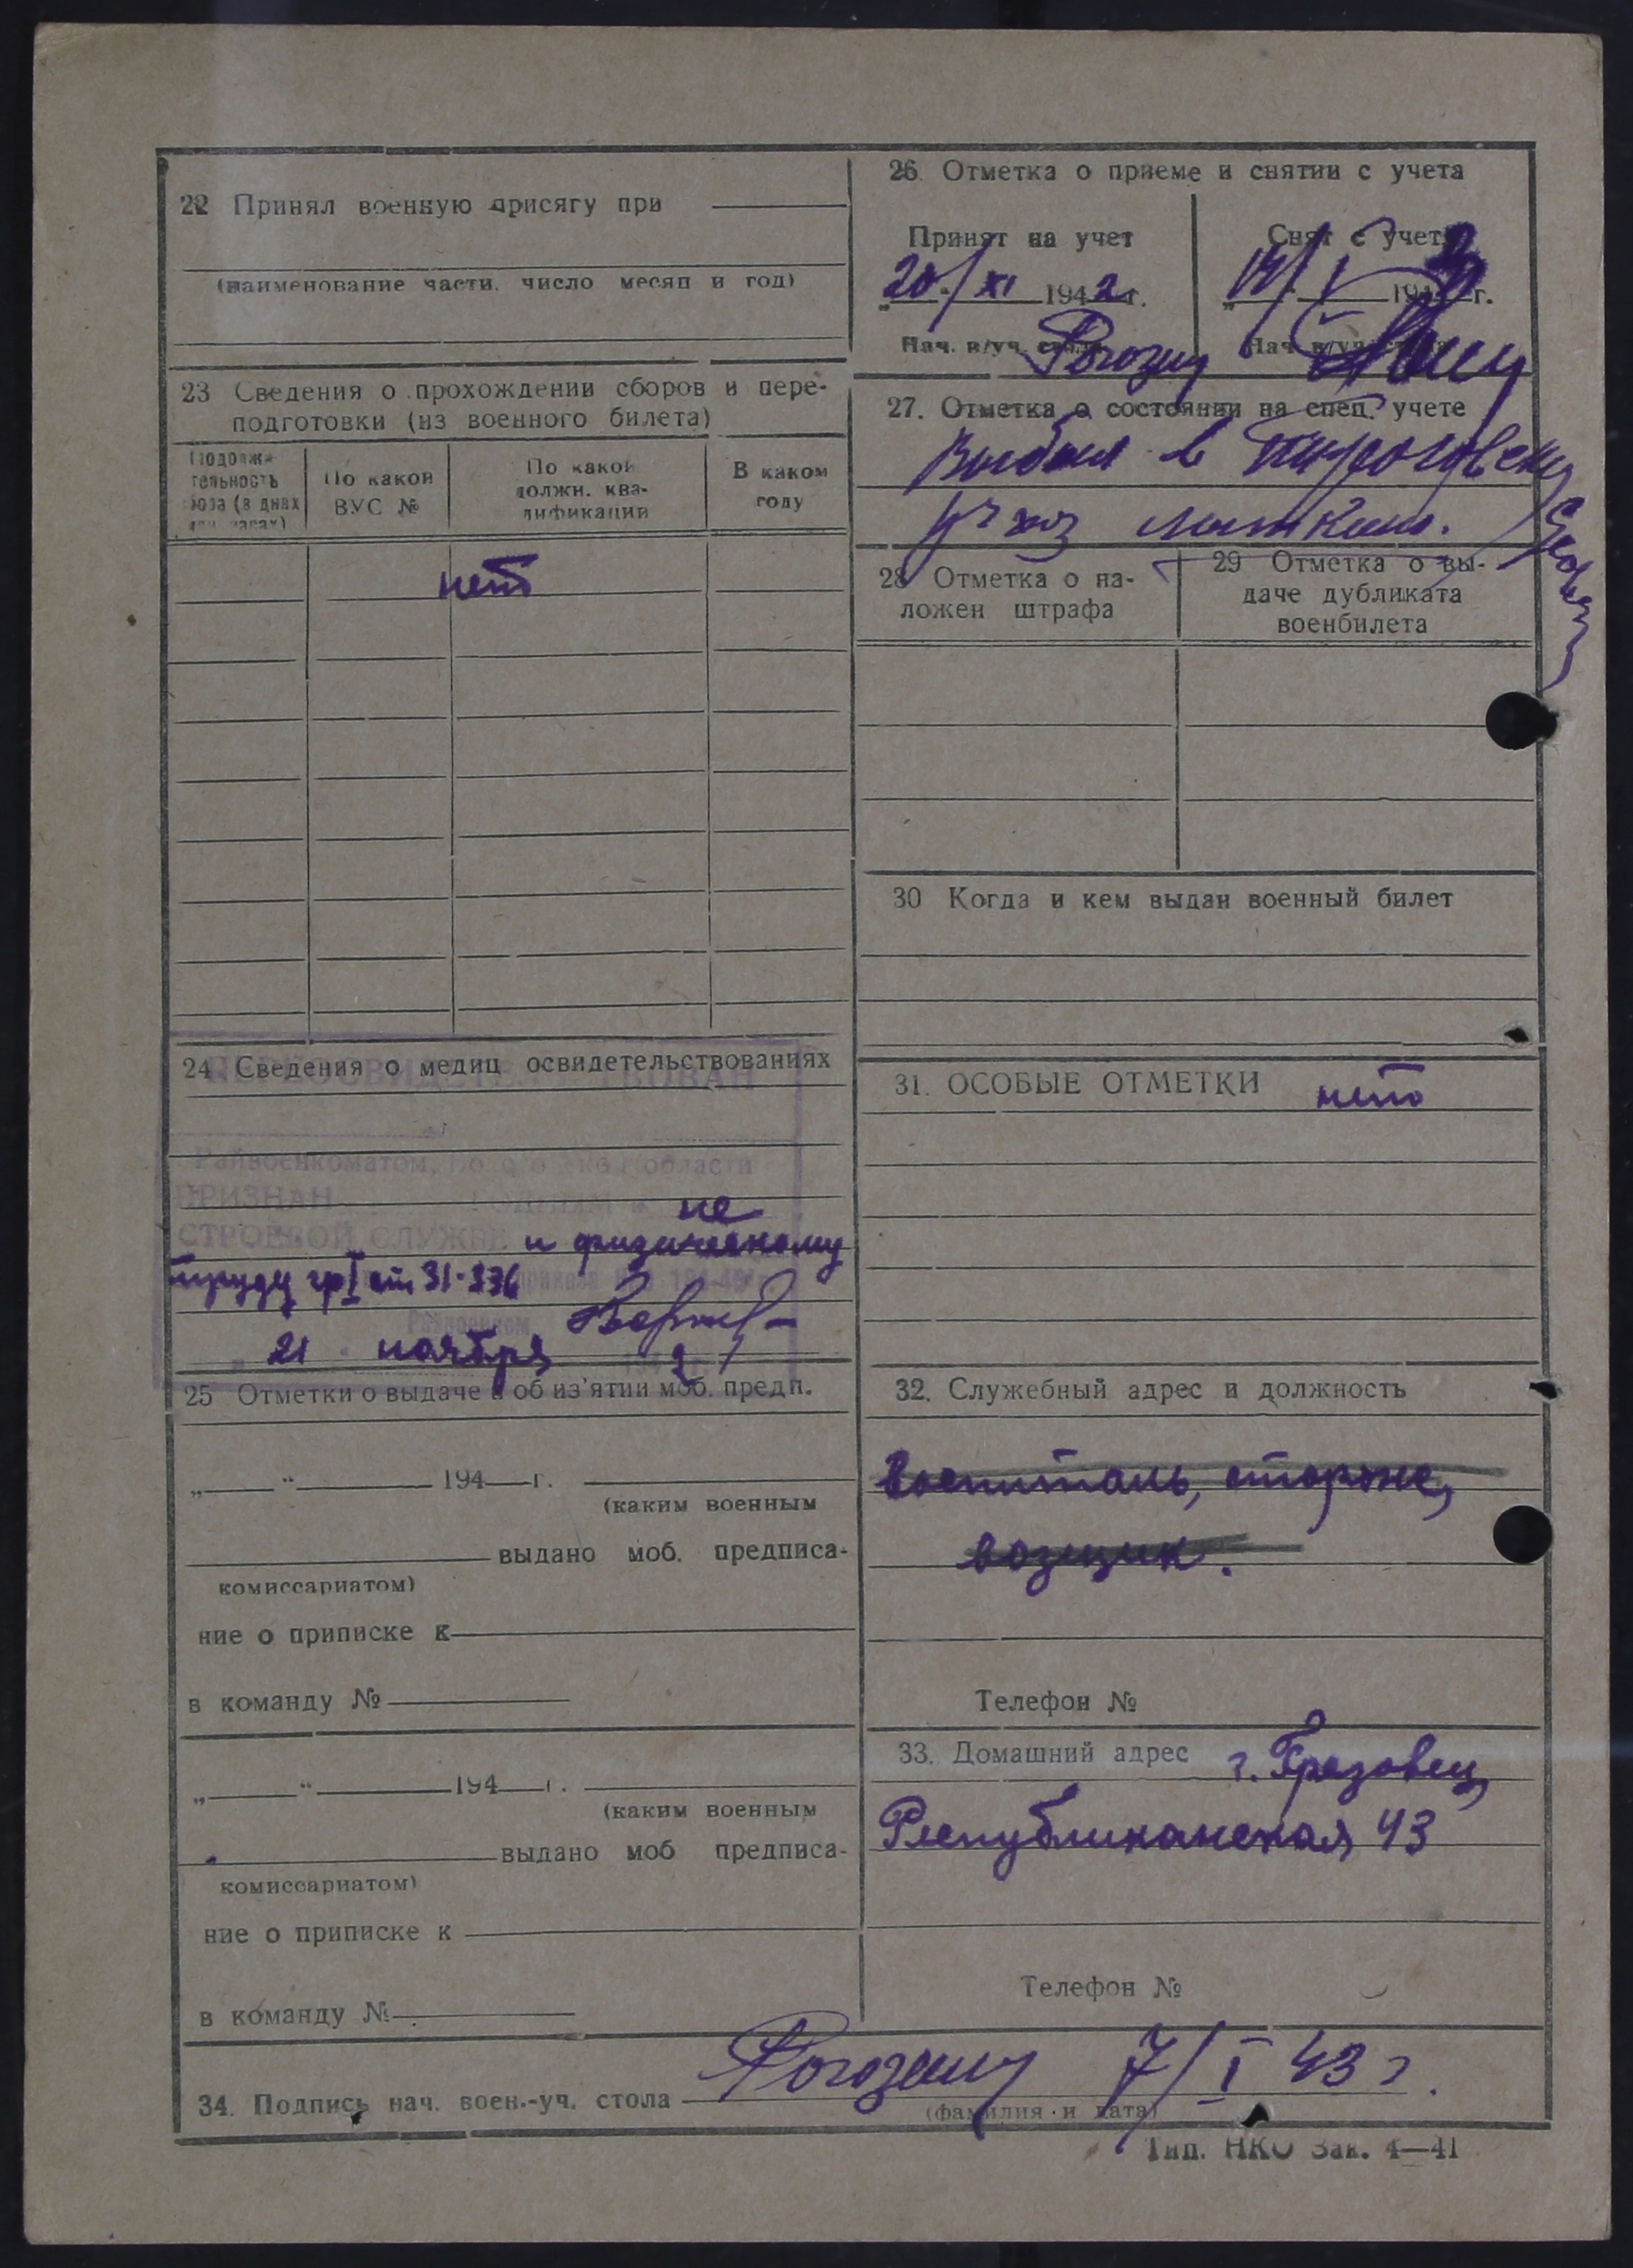 22 Принял военную присягу при
(наименование части, число месяц и год)
23 Сведения о прохождении сборов и пере-
подготовки (из военного билета)
Продолжи-
тельность
сбора (в днях
или часах)
По какой
ВУС №
По какой
должн. ква-
лификации
В каком
году
нет
24. Сведения о медиц освидетельствованиях
Райвоенкоматом, области
ПРИЗНАН ГОДНЫМ к
не
СТРОЕВОЙ СЛУЖБЕ и физическому
труду гр I ст 31-336
21 ноября 2
25 Отметки о выдаче и об из'ятии моб. предп.
„ “ 194 г.
(каким военным
выдано моб. предписа-
комиссариатом)
ние о приписке к
в команду №
„ “ 194 г.
(каким военным
выдано моб предписа-
комиссариатом)
ние о приписке к
в команду №
26. Отметка о приеме и снятии с учета
Принят на учет
„20/XI 1942 г.
Нач. в/уч. стола
Рогозин
Снят с учета
194 г.
Нач. в/уч. стола
27. Отметка о состоянии на спец. учете
Выбыл в
28 Отметка о на-
ложен штрафа
29 Отметка о вы-
даче дубликата
военбилета
30 Когда и кем выдан военный билет
31. ОСОБЫЕ ОТМЕТКИ нет
32. Служебный адрес и должность
Госпиталь, сторож,
возщик.
Телефон №
33. Домашний адрес г. Грязовец,
Республиканская 43
Телефон №
34. Подпись нач. воен.-уч. стола 7/I 43 г.
(фамилия и дата)
Тип. НКО Зак. 4—41